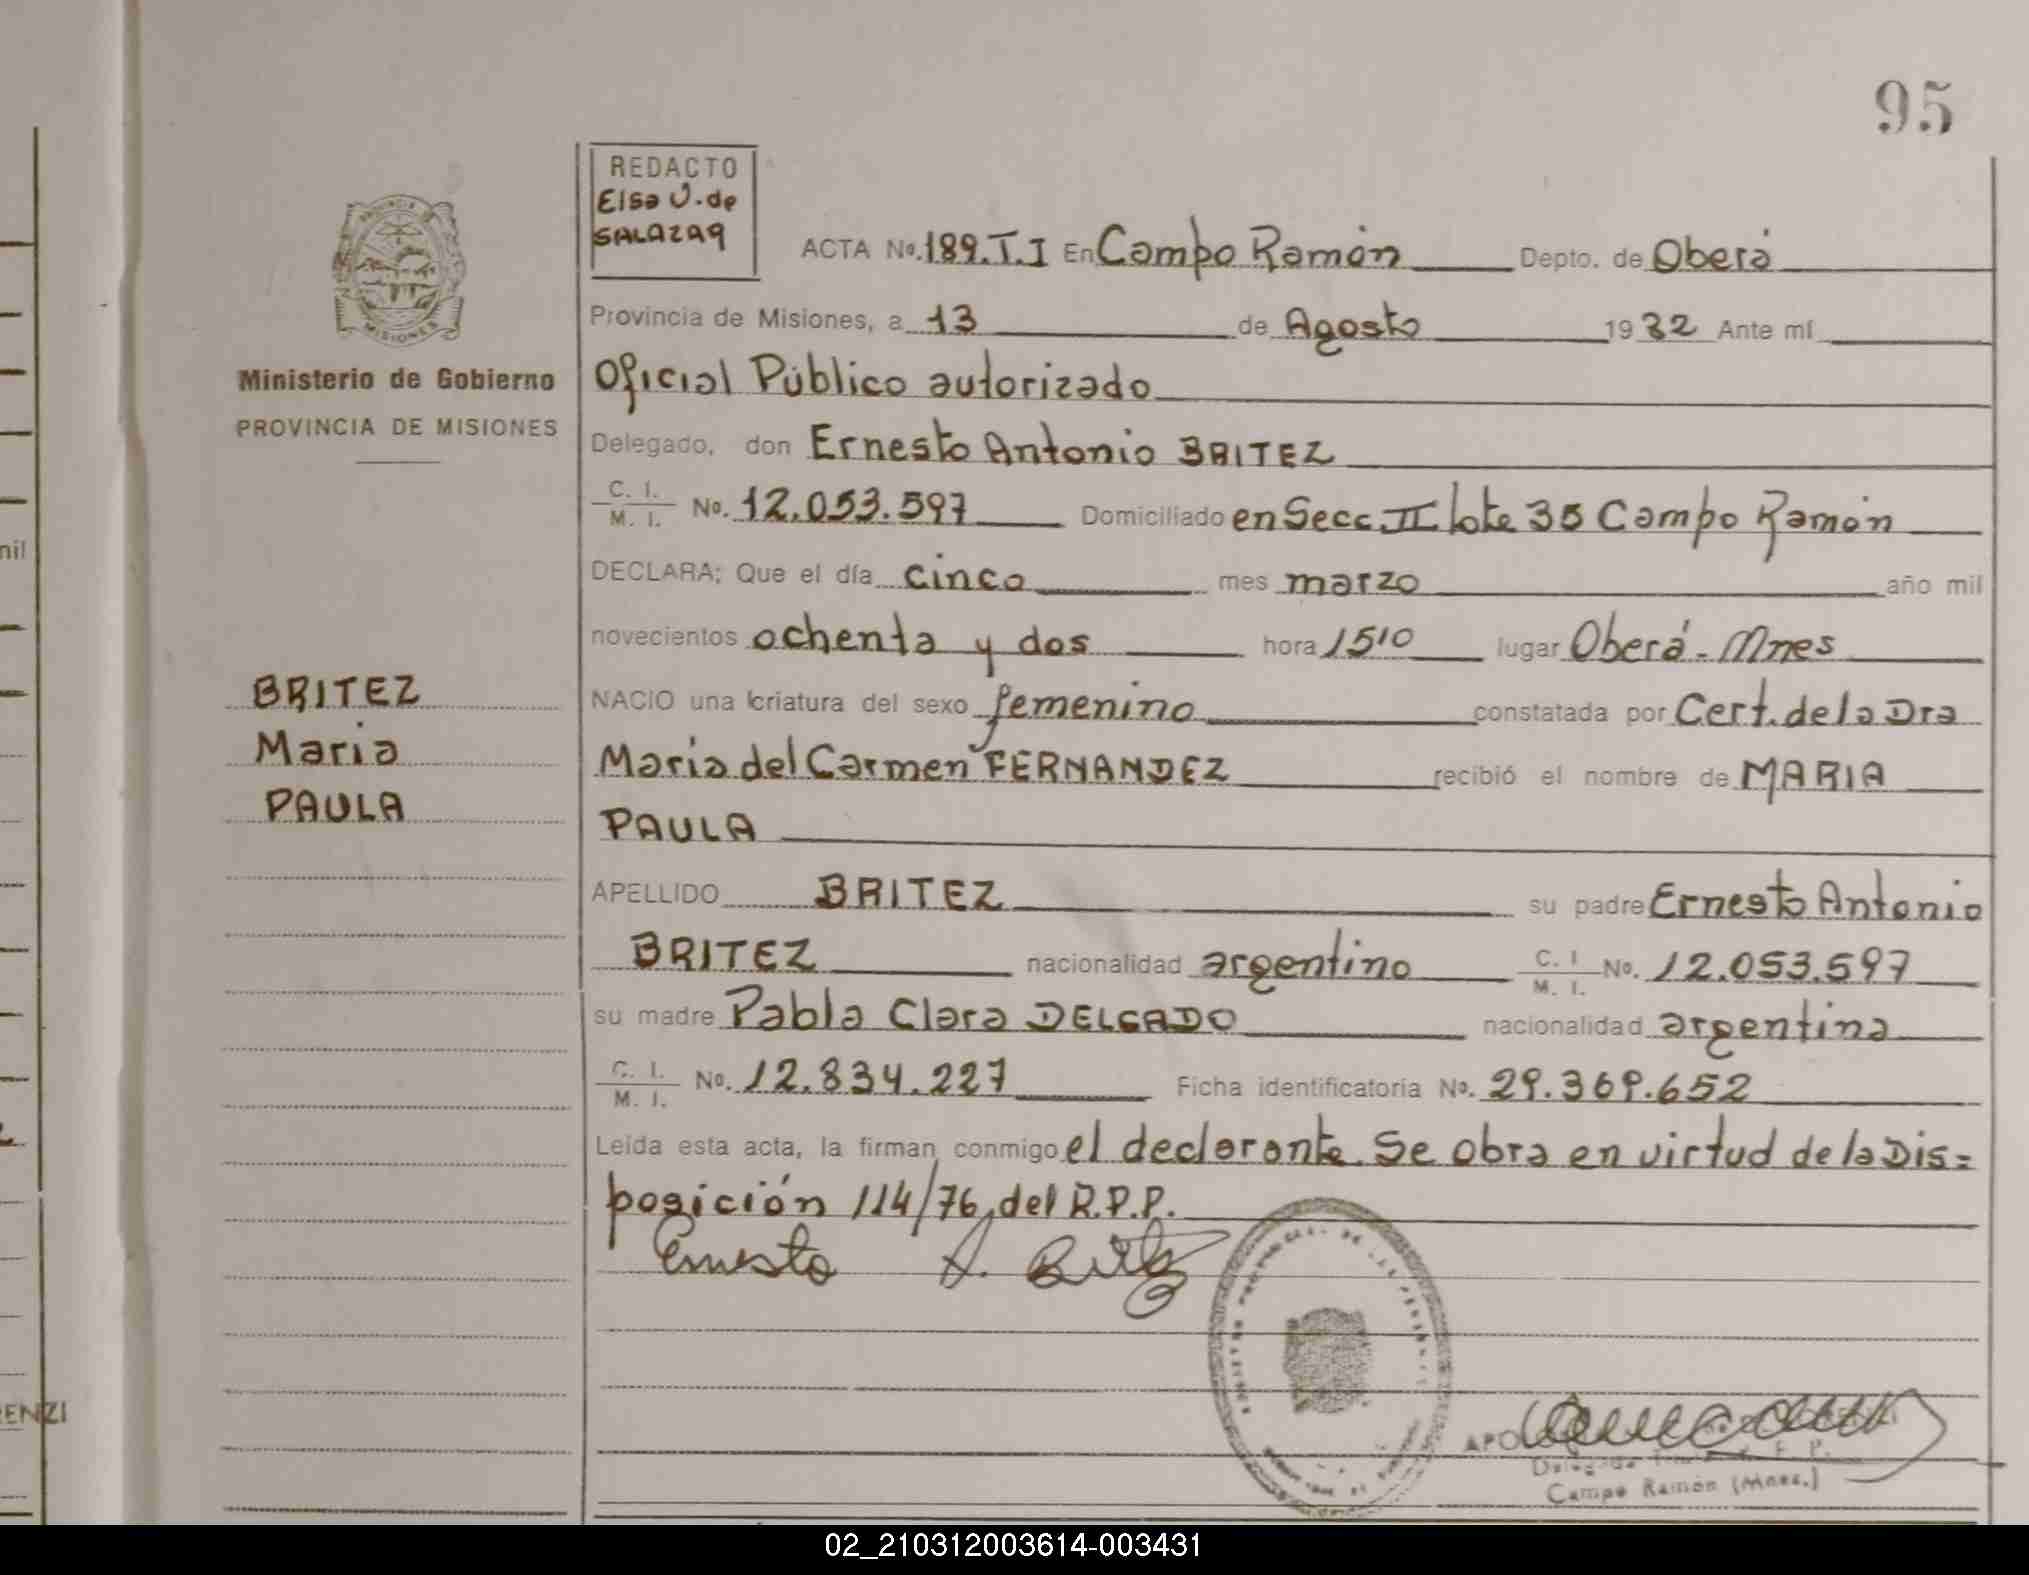 95
REDACTO
Elsa V. de
SALAZAR
ACTA No. 189.T.I En Campo Ramón Depto. de Oberá
Provincia de Misiones, a 13 de Agosto 1982 Ante mí
Ministerio de Gobierno
PROVINCIA DE MISIONES
MISIONES
Oficial Público autorizado
Delegado, don Ernesto Antonio BRITEZ
C. I.
M. I. No. 12.053.597 Domiciliado en Secc. II lote 35 Campo Ramón
DECLARA; Que el día cinco mes marzo año mil
novecientos ochenta y dos hora 15¹⁰ lugar Oberá - Mnes
BRITEZ
Maria
PAULA
NACIO una criatura del sexo femenino constatada por Cert. de la Dra
María del Carmen FERNANDEZ recibió el nombre de MARIA
PAULA
APELLIDO BRITEZ su padre Ernesto Antonio
BRITEZ nacionalidad argentino C. I. M. I. No. 12.053.597
su madre Pabla Clara DELGADO nacionalidad argentina
C. I.
M. I. No. 12.834.227 Ficha identificatoria No. 29.369.652
Leída esta acta, la firman conmigo el declarante. Se obra en virtud de la Dis=
posición 114/76, del R.P.P.
Ernesto A. Britez
Campo Ramón (Mnes.)
nil
ENZI
02_210312003614-003431